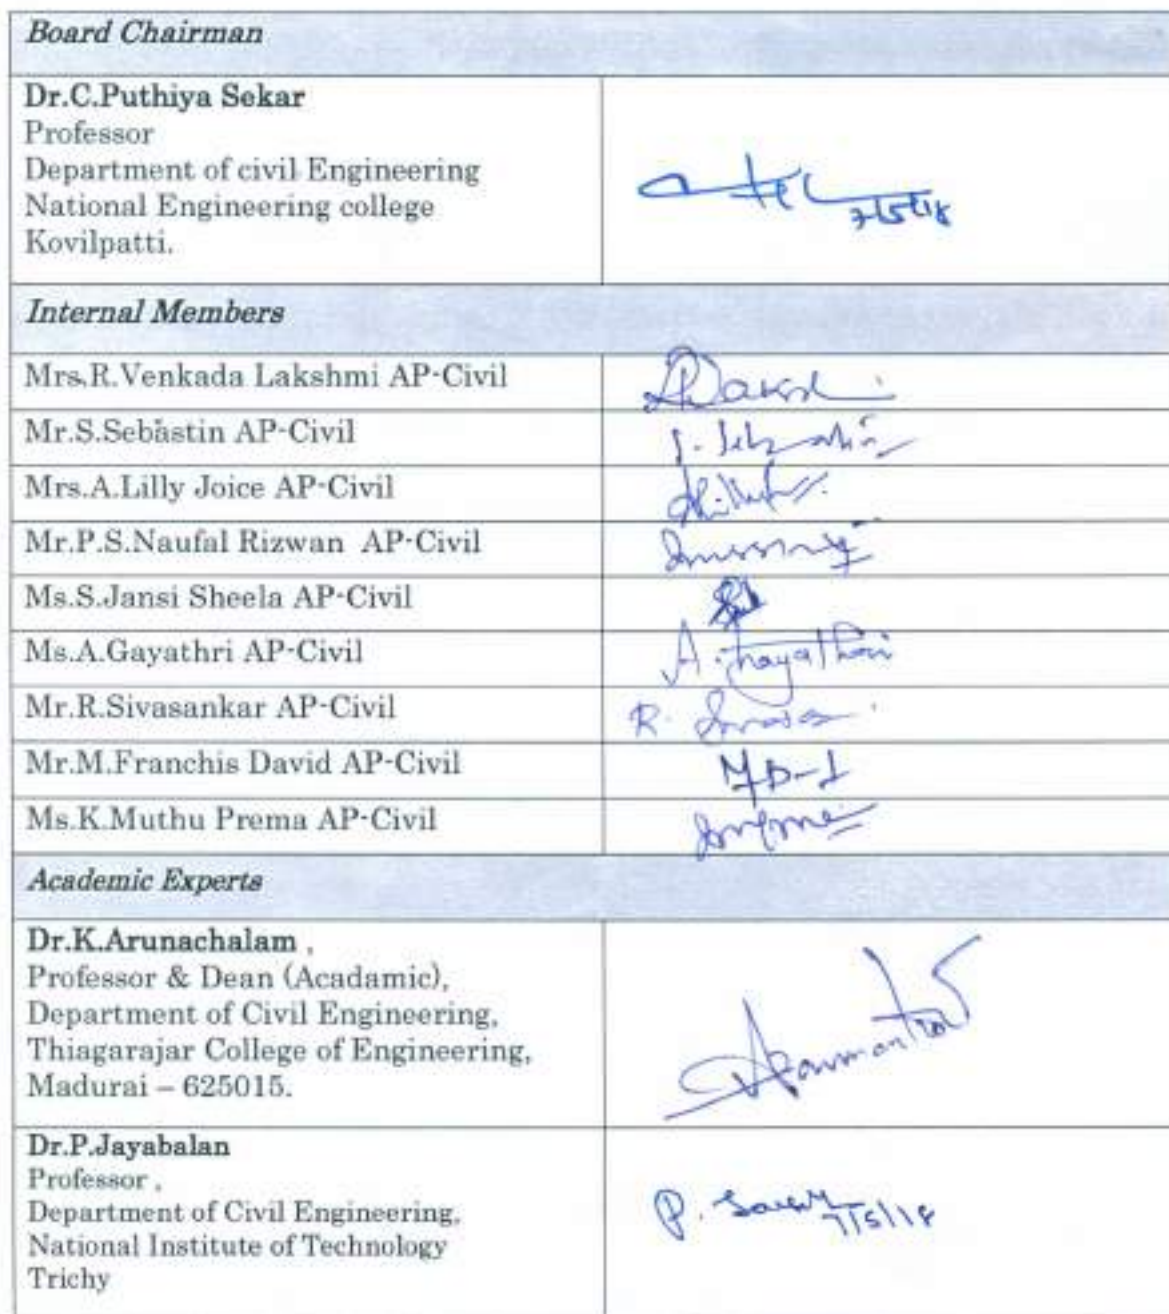 Board Chairman
Dr.C.Puthiya Sekar
Professor
Department of civil Engineering
National Engineering college
Kovilpatti.
7/5/18
Internal Members
Mrs.R.Venkada Lakshmi AP-Civil
Mr.S.Sebastin AP-Civil
S. Sebastin
Mrs.A.Lilly Joice AP-Civil
Mr.P.S.Naufal Rizwan AP-Civil
Ms.S.Jansi Sheela AP-Civil
Ms.A.Gayathri AP-Civil
A. Gayathri
Mr.R.Sivasankar AP-Civil
R.
Mr.M.Franchis David AP-Civil
Ms.K.Muthu Prema AP-Civil
Academic Experts
Dr.K.Arunachalam ,
Professor & Dean (Acadamic),
Department of Civil Engineering,
Thiagarajar College of Engineering,
Madurai – 625015.
Dr.P.Jayabalan
Professor ,
Department of Civil Engineering,
National Institute of Technology
Trichy
P. 7/5/18